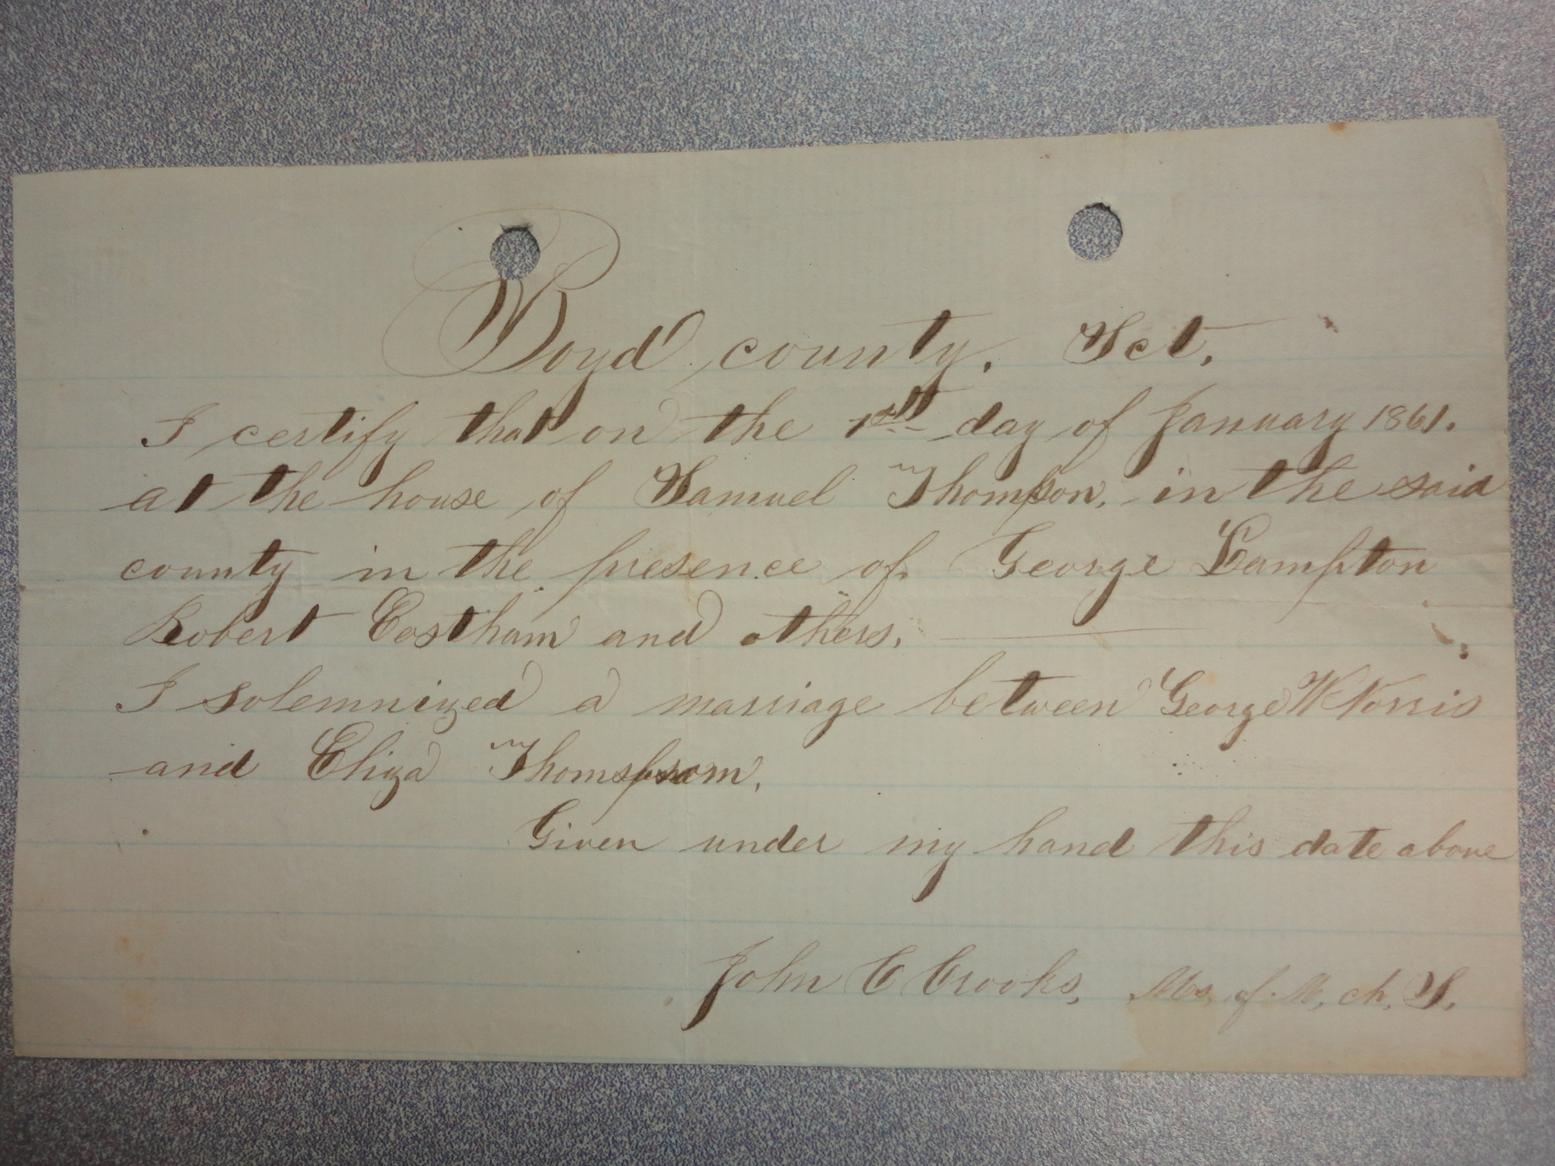 Boyd county. Sct.
I certify that on the 1st day of January 1861.
at the house of Samuel Thompson, in the said
county in the presence of George Lampton
Robert Eastham and others.
I solemnized a marriage between George W Norris
and Eliza Thompson.
Given under my hand this date above
John C Crooks, of M, ch, S.